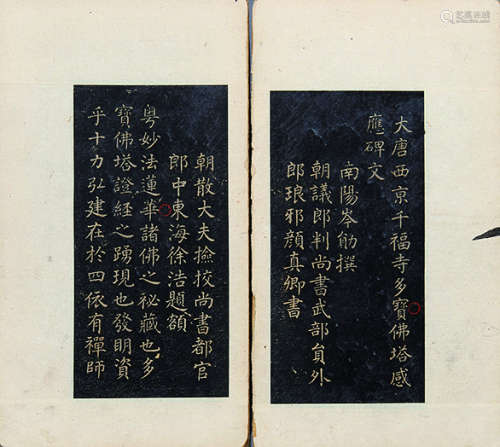 大唐西京千福寺多寶佛塔感
應碑文
南陽岑勛撰
朝議郎判尚書武部員外
郎琅邪顏真卿書
朝散大夫撿校尚書都官
郎中東海徐浩題額
粵妙法蓮華諸佛之祕藏也多
寶佛塔證經之踴現也發明資
乎十力弘建在於四依有禪師